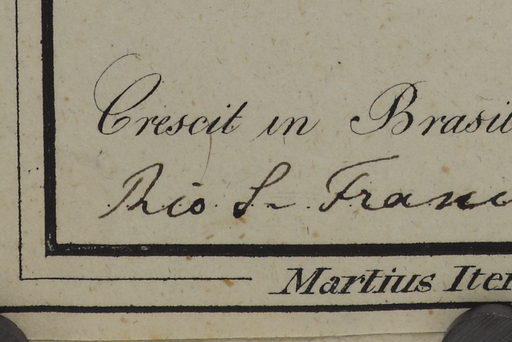 Crescit in Brasil
Rio S. Franc
Martius Iter